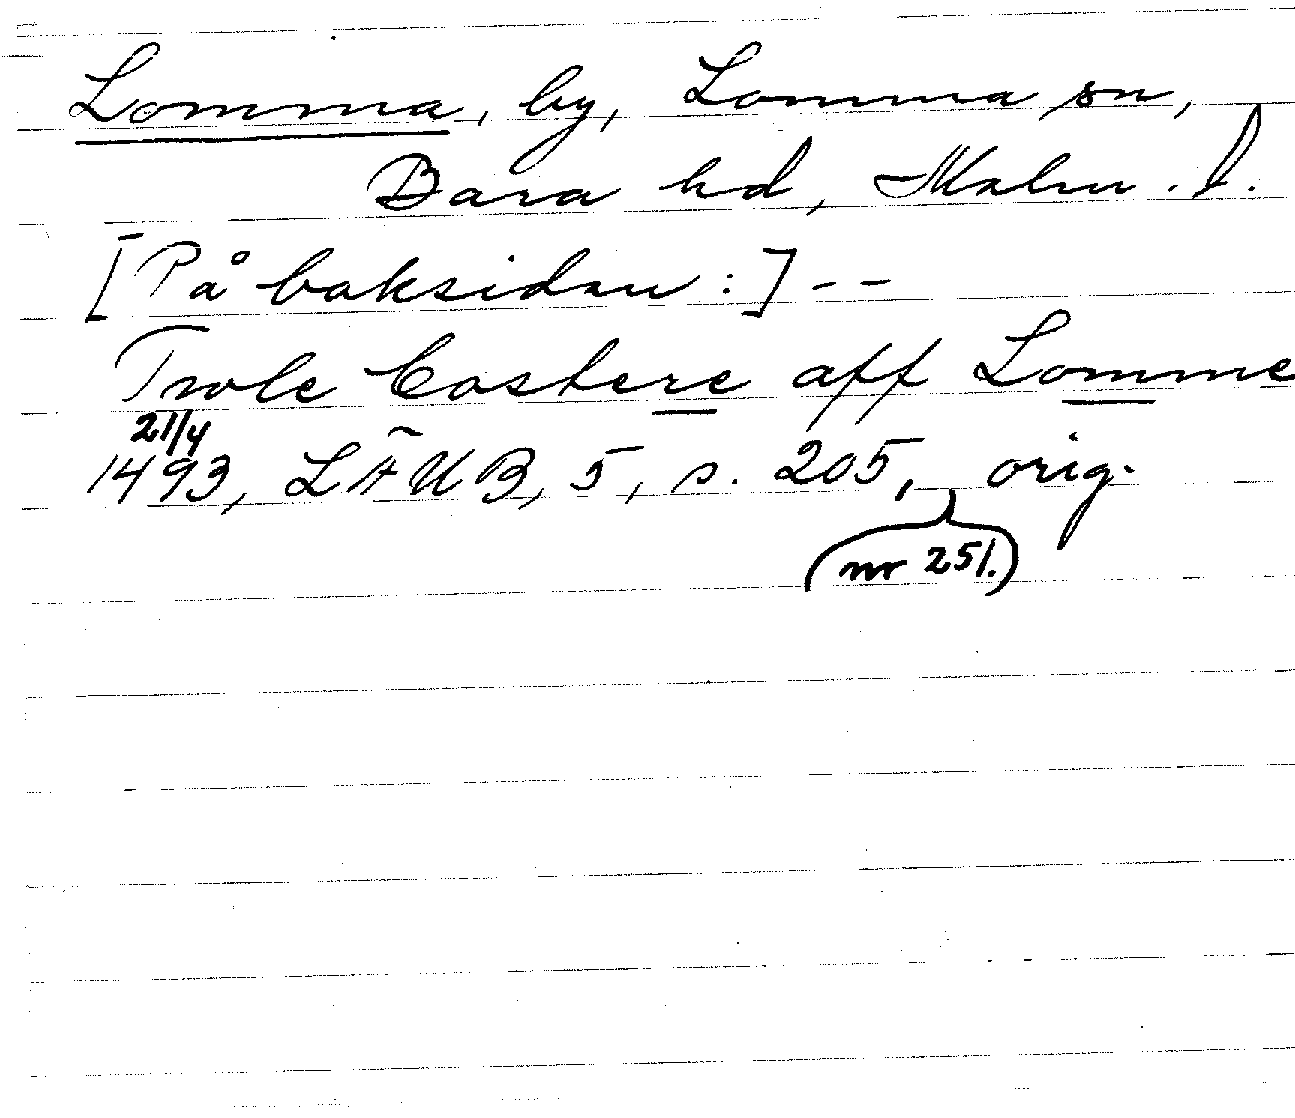 Lomma, by, Lomma sn,
Bara hd, Malm. l.
[På baksidan:] --
Trole Costere aff Lomme
21/4
1493, LÄUB, 5, s. 205, orig.
nr 251.